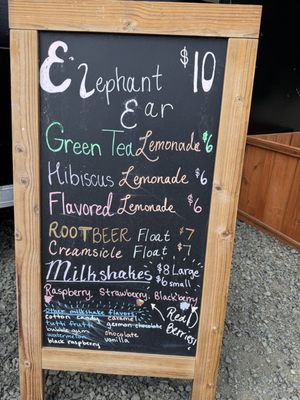 Elephant $10
Ear
Green Tea Lemonade $6
Hibiscus Lemonade $6
Flavored Lemonade $6
ROOTBEER Float $7
Creamsicle Float $7
Milkshakes $8 Large
$6 small
Raspberry Strawberry Blackberry
Real
Berries
Other milkshake flavors
cotton candy caramel
tutti frutti german chocolate
bubble gum
watermelon chocolate
black raspberry vanilla